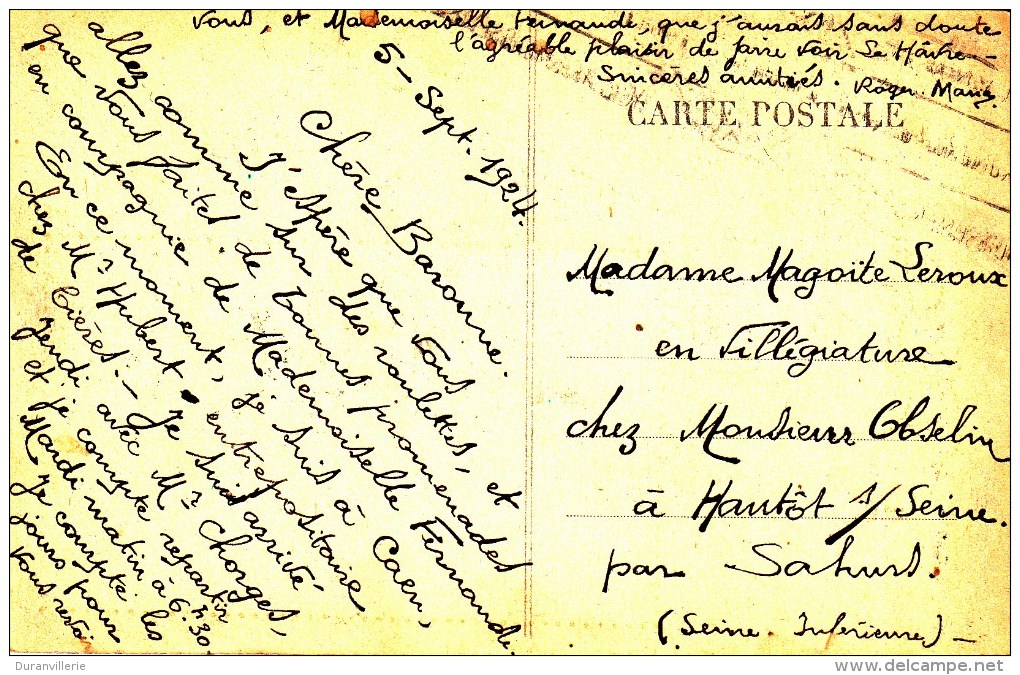 5 - Sept. 1924.
Chère Baronne.
J'espère que vous
allez comme sur des roulettes, et
que vous faites de bonnes promenades
en compagnie de Mademoiselle Fernande.
En ce moment, je suis à Caen,
chez Mr Hubert, entrepositaire
de bières. - Je suis arrivé
jendi avec Mr Chorges,
et je compte repartir
Mardi matin à 6h30
Je compte les
jours pour
vous revoi
vous, et Mademoiselle Fernande, que j'aurais sans doute
l'agréable plaisir de faire voir Le Hâvre -
Sincères amitiés. Roger
CARTE POSTALE
Madame Magoïte Leroux
en Villégiature
chez Monsieur Obselin
à Hautôt s/Seine.
par Sahurs.
(Seine. Inférieure) -
Duranvillerie
www.delcampe.net